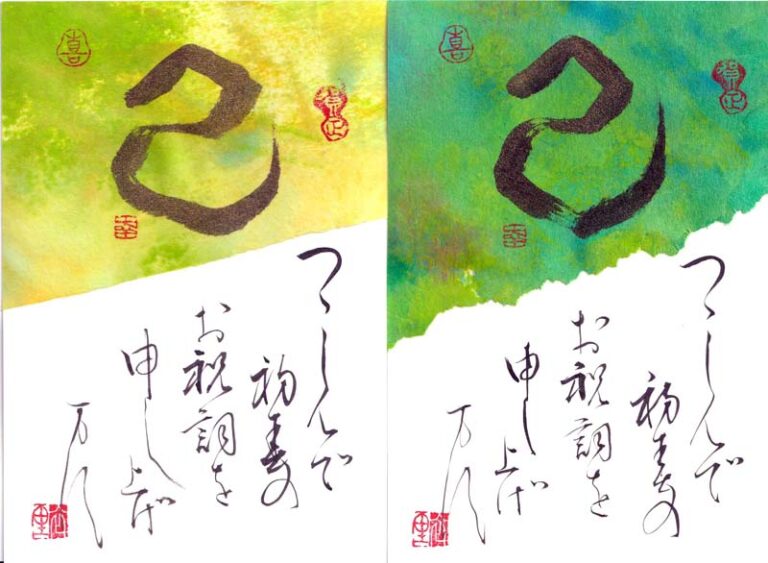 喜
巳
つゝしんで
初春の
お祝詞を
申し上げ
喜
巳
つゝしんで
初春の
お祝詞を
申し上げ